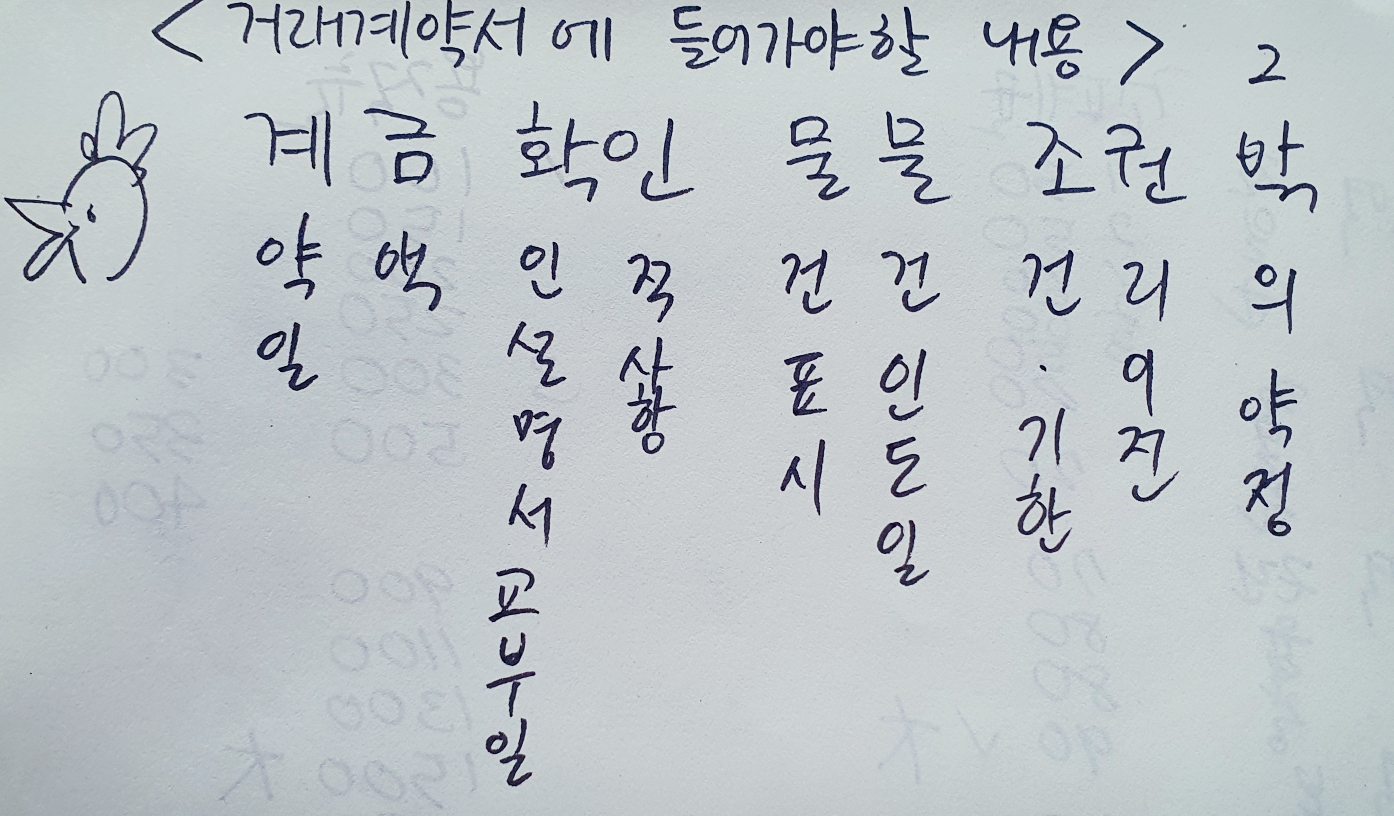 <거래계약서에 들어가야할 내용>
계약일
금액
확인설명서교부일
인적상황
물건표시
물건인도일
조건·기한
권리이전
2
밖의약정